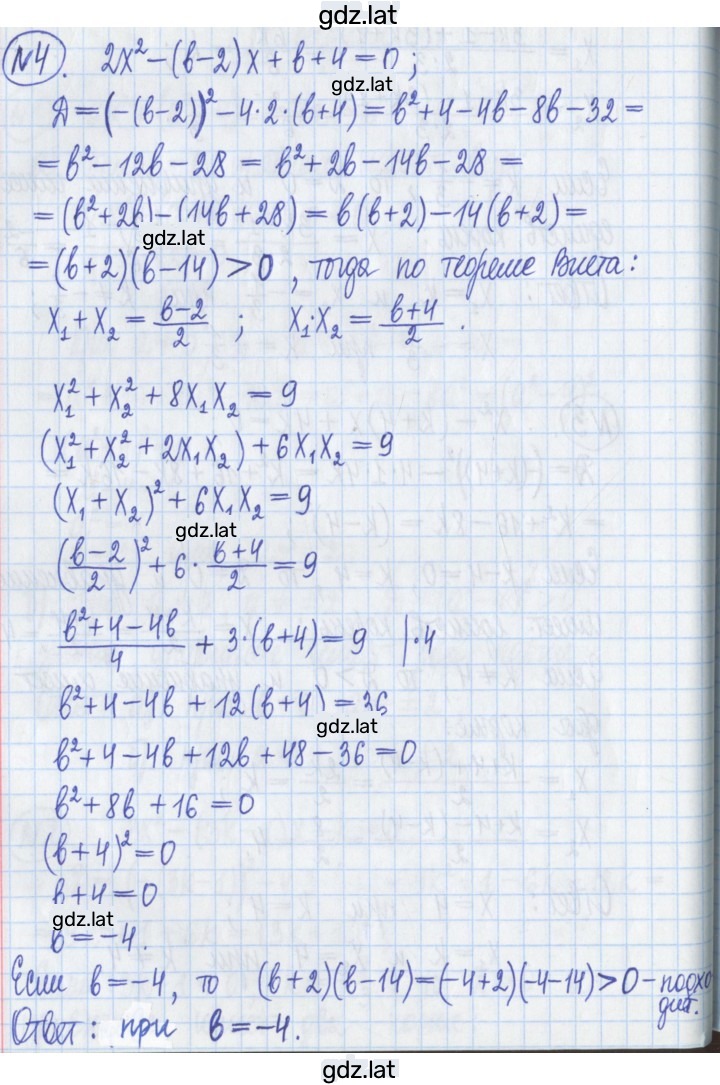 gdz.lat
№4. 2x² − (в−2)x + в + 4 = 0;
gdz.lat
Д = (−(в−2))² − 4·2·(в+4) = в² + 4 − 4в − 8в − 32 =
= в² − 12в − 28 = в² + 2в − 14в − 28 =
= (в² + 2в) − (14в + 28) = в(в+2) − 14(в+2) =
gdz.lat
= (в+2)(в−14) > 0, тогда по теореме Виета:
x₁ + x₂ = (в−2)/2 ; x₁·x₂ = (в+4)/2 .
x₁² + x₂² + 8x₁x₂ = 9
(x₁² + x₂² + 2x₁x₂) + 6x₁x₂ = 9
(x₁ + x₂)² + 6x₁x₂ = 9
gdz.lat
((в−2)/2)² + 6 · (в+4)/2 = 9
(в² + 4 − 4в)/4 + 3·(в+4) = 9 |·4
в² + 4 − 4в + 12(в+4) = 36
gdz.lat
в² + 4 − 4в + 12в + 48 − 36 = 0
в² + 8в + 16 = 0
(в+4)² = 0
в + 4 = 0
gdz.lat
в = −4.
Если в = −4, то (в+2)(в−14) = (−4+2)(−4−14) > 0 − подхо
дит.
Ответ: при в = −4.
gdz.lat